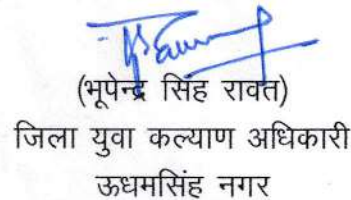 (भूपेन्द्र सिंह रावत)
जिला युवा कल्याण अधिकारी
ऊधमसिंह नगर